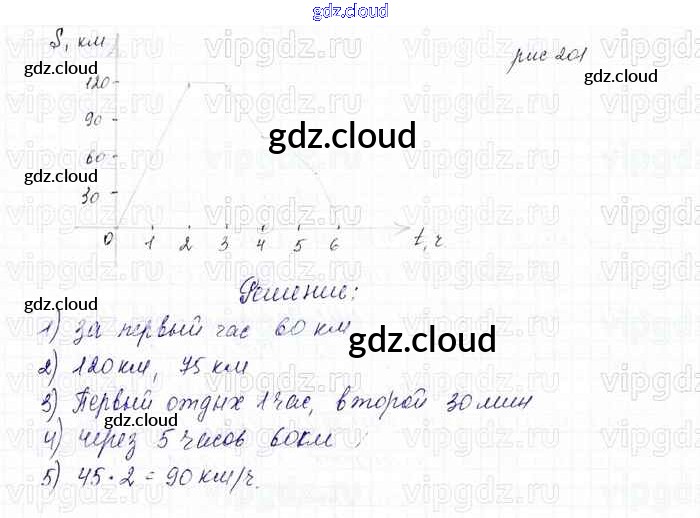 gdz.cloud
S, км
рис 201
gdz.cloud
gdz.cloud
120
90
gdz.cloud
60
gdz.cloud
30
0 1 2 3 4 5 6 t, ч
Решение:
gdz.cloud
1) За первый час 60 км
gdz.cloud
2) 120 км, 75 км
3) Первый отдых 1 час, второй 30 мин
gdz.cloud
4) через 5 часов 60 км
5) 45 · 2 = 90 км/ч.
gdz.cloud